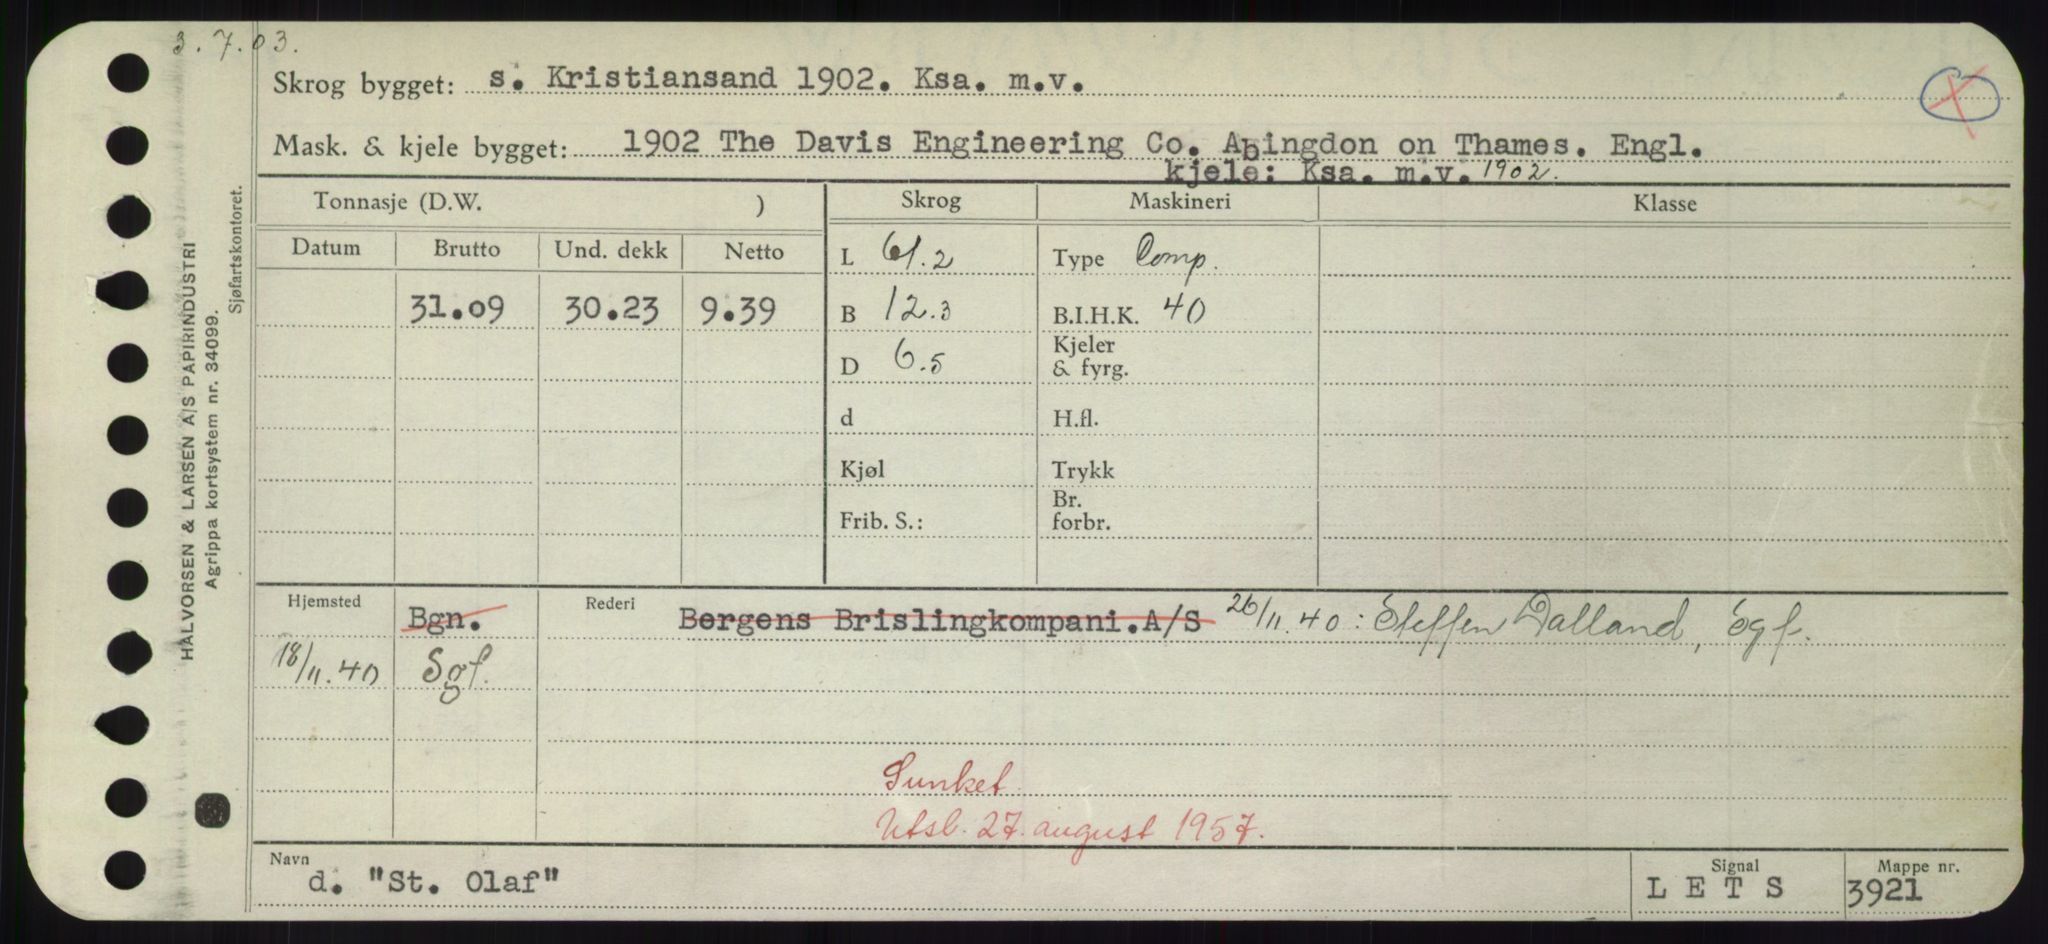 3.7.03.
Skrog bygget: s. Kristiansand 1902. Ksa. m.v.
Mask. & kjele bygget: 1902 The Davis Engineering Co. Abingdon on Thames. Engl.
kjele: Ksa. m.v. 1902.
Tonnasje (D.W. ) Skrog Maskineri Klasse
Datum Brutto Und. dekk Netto L 61.2 Type Comp.
31.09 30.23 9.39 B 12.3 B.I.H.K. 40
D 6.5 Kjeler & fyrg.
d H.fl.
Kjøl Trykk
Frib. S.: Br. forbr.
Hjemsted Bgn. Rederi Bergens Brislingkompani.A/S 26/11.40: Steffen Dalland, Sgf.
18/11.40 Sgf.
Sunket.
Utsl. 27. august 1957.
Navn Signal Mappe nr.
d. "St. Olaf" L E T S 3921
HALVORSEN & LARSEN A/S PAPIRINDUSTRI
Agrippa kortsystem nr. 34099.
Sjøfartskontoret.